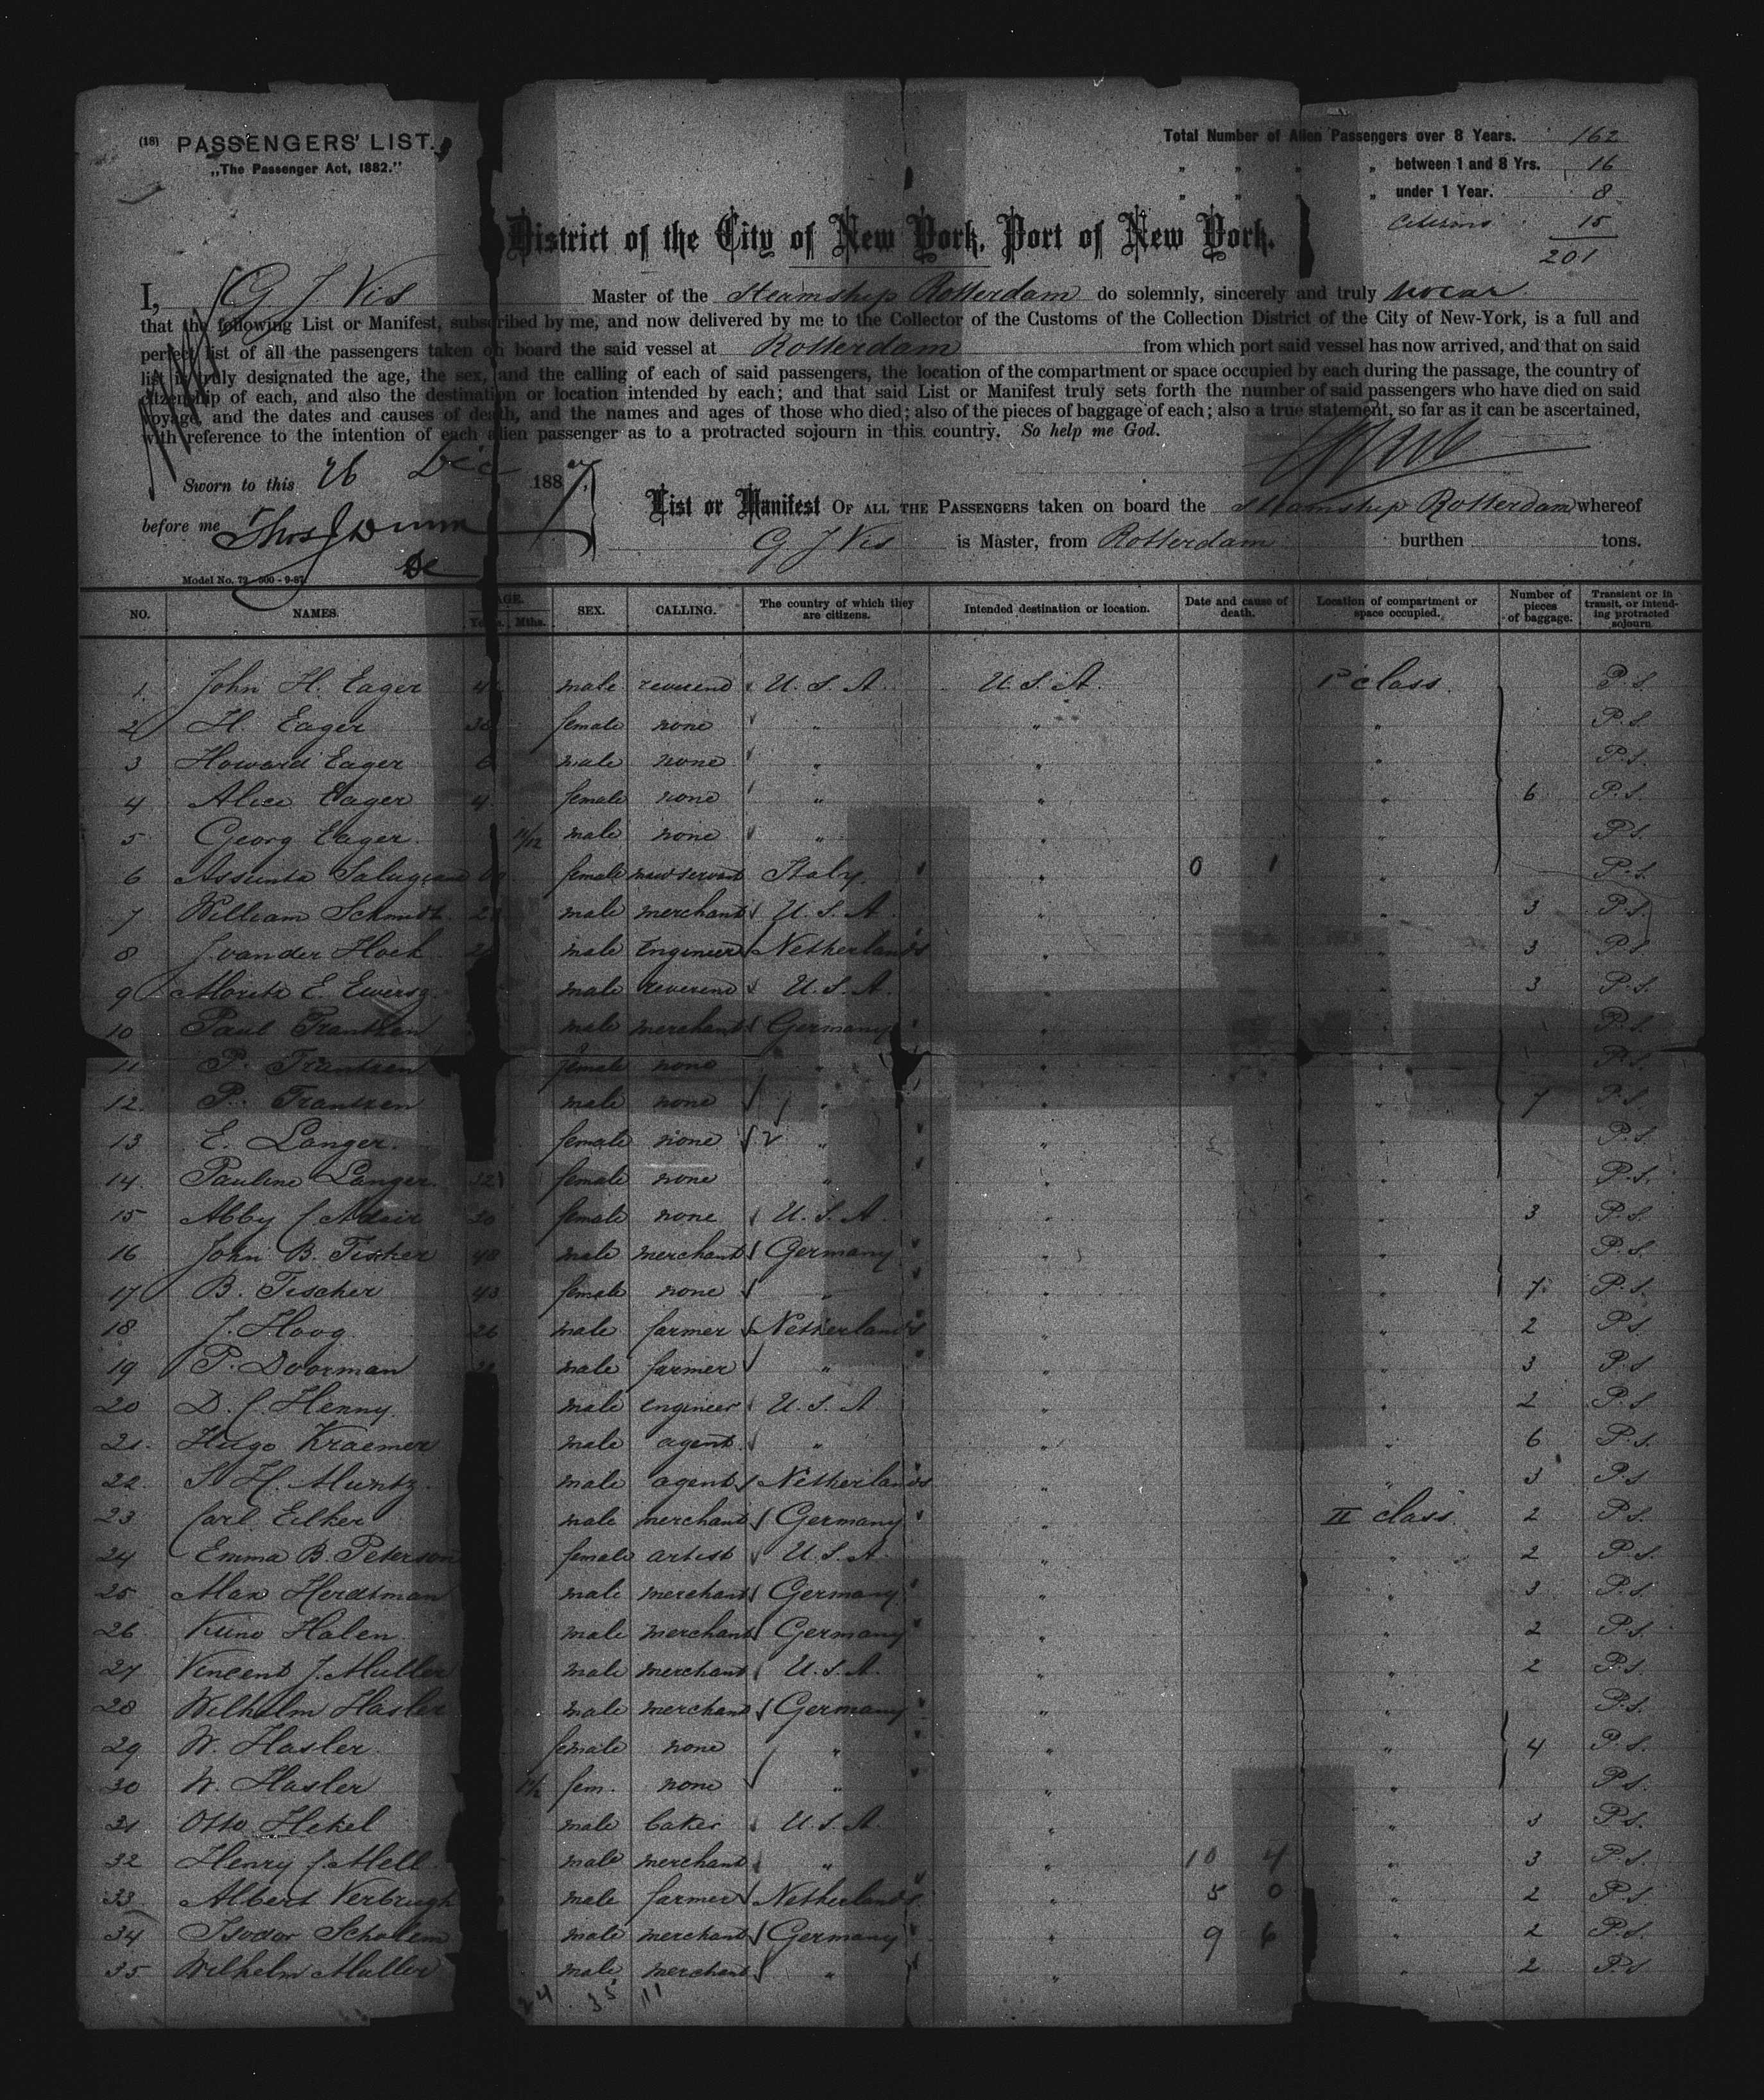 (18) PASSENGERS' LIST.
„The Passenger Act, 1882.”
Total Number of Alien Passengers over 8 Years. 162
„ „ „ „ between 1 and 8 Yrs. 16
„ „ „ „ under 1 Year. 8
Citizens 15
201
District of the City of New York, Port of New York.
I, G J Vis Master of the Steamship Rotterdam do solemnly, sincerely and truly swear
that the following List or Manifest, subscribed by me, and now delivered by me to the Collector of the Customs of the Collection District of the City of New-York, is a full and
perfect list of all the passengers taken on board the said vessel at Rotterdam from which port said vessel has now arrived, and that on said
list is truly designated the age, the sex, and the calling of each of said passengers, the location of the compartment or space occupied by each during the passage, the country of
citizenship of each, and also the destination or location intended by each; and that said List or Manifest truly sets forth the number of said passengers who have died on said
voyage, and the dates and causes of death, and the names and ages of those who died; also of the pieces of baggage of each; also a true statement, so far as it can be ascertained,
with reference to the intention of each alien passenger as to a protracted sojourn in this country. So help me God.
Sworn to this 26 Dec 1887
before me Thos J Dunn
List or Manifest OF ALL THE PASSENGERS taken on board the Steamship Rotterdam whereof
G J Vis is Master, from Rotterdam burthen tons.
Model No. 72 - 500 - 9-87.
NO. NAMES. AGE. Years. Mths. SEX. CALLING. The country of which they are citizens. Intended destination or location. Date and cause of death. Location of compartment or space occupied. Number of pieces of baggage. Transient or in transit, or intending protracted sojourn
1. John H. Eager male reverend U. S. A. U. S. A. 1e class P.S.
2 H. Eager female none „ „ „ P.S.
3 Howard Eager male none „ „ „ P.S.
4 Alice Eager 4 female none „ „ „ 6 P.S.
5 Georg Eager 11/12 male none „ „ „ P.S.
6 Assunta female maid servant Italy „ 0 1 „ P.S.
7 William Schmidt male merchant U. S. A. „ „ 3 P.S.
8 J van der Hoek male Engineer Netherlands „ „ 3 P.S.
9 Moritz E. male reverend U. S. A. „ „ 3 P.S.
10 Paul Frantzen male merchant Germany „ „ P.S.
11 P. Frantzen female none „ „ „ P.S.
12. P. Frantzen male none „ „ „ 7 P.S.
13 E. Langer female none „ „ „ P.S.
14. Pauline Langer 32 female none „ „ „ P.S.
15 Abby C Adair 30 female none U. S. A. „ „ 3 P.S.
16 John B. Fischer 48 male merchant Germany „ „ P.S.
17 B. Fischer 43 female none „ „ „ 7 P.S.
18 J. Hoog 26 male farmer Netherlands „ „ 2 P.S.
19 P. Doorman male farmer „ „ „ 3 P.S.
20 D. C. Henny male engineer U. S. A „ „ 2 P.S.
21. Hugo Kraemer male agent „ „ „ 6 P.S.
22. S. H. Muntz male agent Netherlands „ „ 3 P.S.
23 Carl Eilker male merchant Germany „ II class 2 P.S.
24 Emma B. Peterson female artist U. S. A. „ „ 2 P.S.
25 Max Herdtman male merchant Germany „ „ 3 P.S.
26 Kuno Halen male merchant Germany „ „ 2 P.S.
27 Vincent J. Muller male merchant U. S. A. „ „ 2 P.S.
28 Wilhelm Hasler male merchant Germany „ „ P.S.
29 W. Hasler female none „ „ „ 4 P.S.
30 W. Hasler fem. none „ „ „ P.S.
31 Otto Hekel male baker U. S. A. „ „ 3 P.S.
32 Henry C. Mell male merchant „ „ 10 4 „ 3 P.S.
33 Albert Verbrugh male farmer Netherlands „ 5 0 „ 2 P.S.
34 Isodor Scholem male merchant Germany „ 9 6 „ 2 P.S.
35 Wilhelm Muller male merchant „ „ „ 2 P.S.
24 35 11